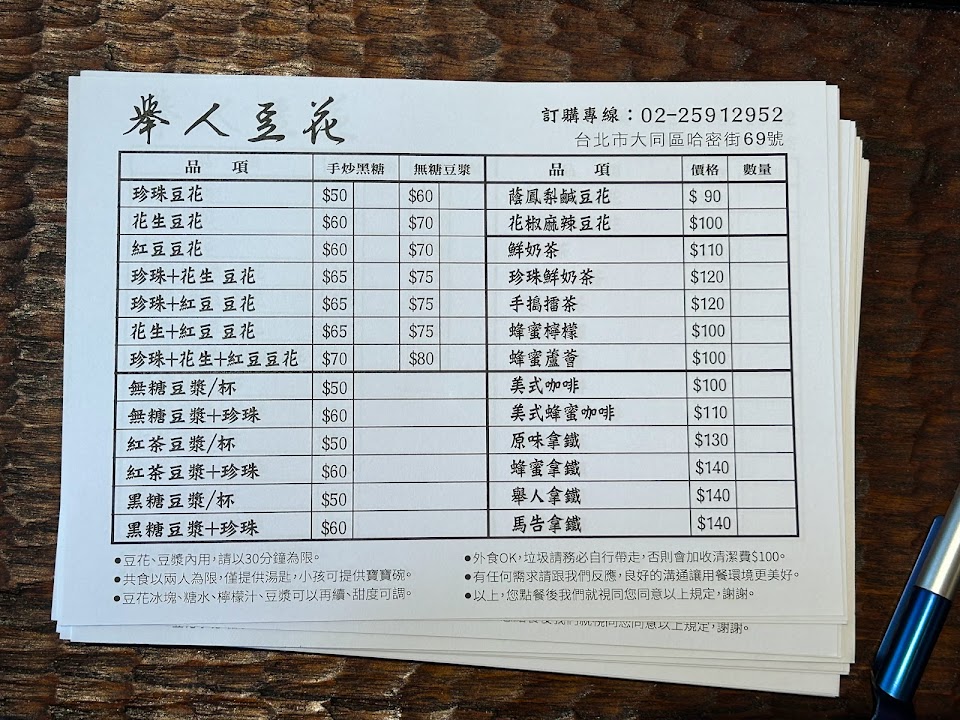 舉人豆花
訂購專線：02-25912952
台北市大同區哈密街69號
品 項 手炒黑糖 無糖豆漿
珍珠豆花 $50 $60
花生豆花 $60 $70
紅豆豆花 $60 $70
珍珠+花生 豆花 $65 $75
珍珠+紅豆 豆花 $65 $75
花生+紅豆 豆花 $65 $75
珍珠+花生+紅豆豆花 $70 $80
無糖豆漿/杯 $50
無糖豆漿+珍珠 $60
紅茶豆漿/杯 $50
紅茶豆漿+珍珠 $60
黑糖豆漿/杯 $50
黑糖豆漿+珍珠 $60
品 項 價格 數量
蔭鳳梨鹹豆花 $ 90
花椒麻辣豆花 $100
鮮奶茶 $110
珍珠鮮奶茶 $120
手搗擂茶 $120
蜂蜜檸檬 $100
蜂蜜蘆薈 $100
美式咖啡 $100
美式蜂蜜咖啡 $110
原味拿鐵 $130
蜂蜜拿鐵 $140
舉人拿鐵 $140
馬告拿鐵 $140
●豆花、豆漿內用，請以30分鐘為限。
●共食以兩人為限，僅提供湯匙，小孩可提供寶寶碗。
●豆花冰塊、糖水、檸檬汁、豆漿可以再續、甜度可調。
●外食OK，垃圾請務必自行帶走，否則會加收清潔費$100。
●有任何需求請跟我們反應，良好的溝通讓用餐環境更美好。
●以上，您點餐後我們就視同您同意以上規定，謝謝。
點餐後我們就視同您同意以上規定，謝謝。